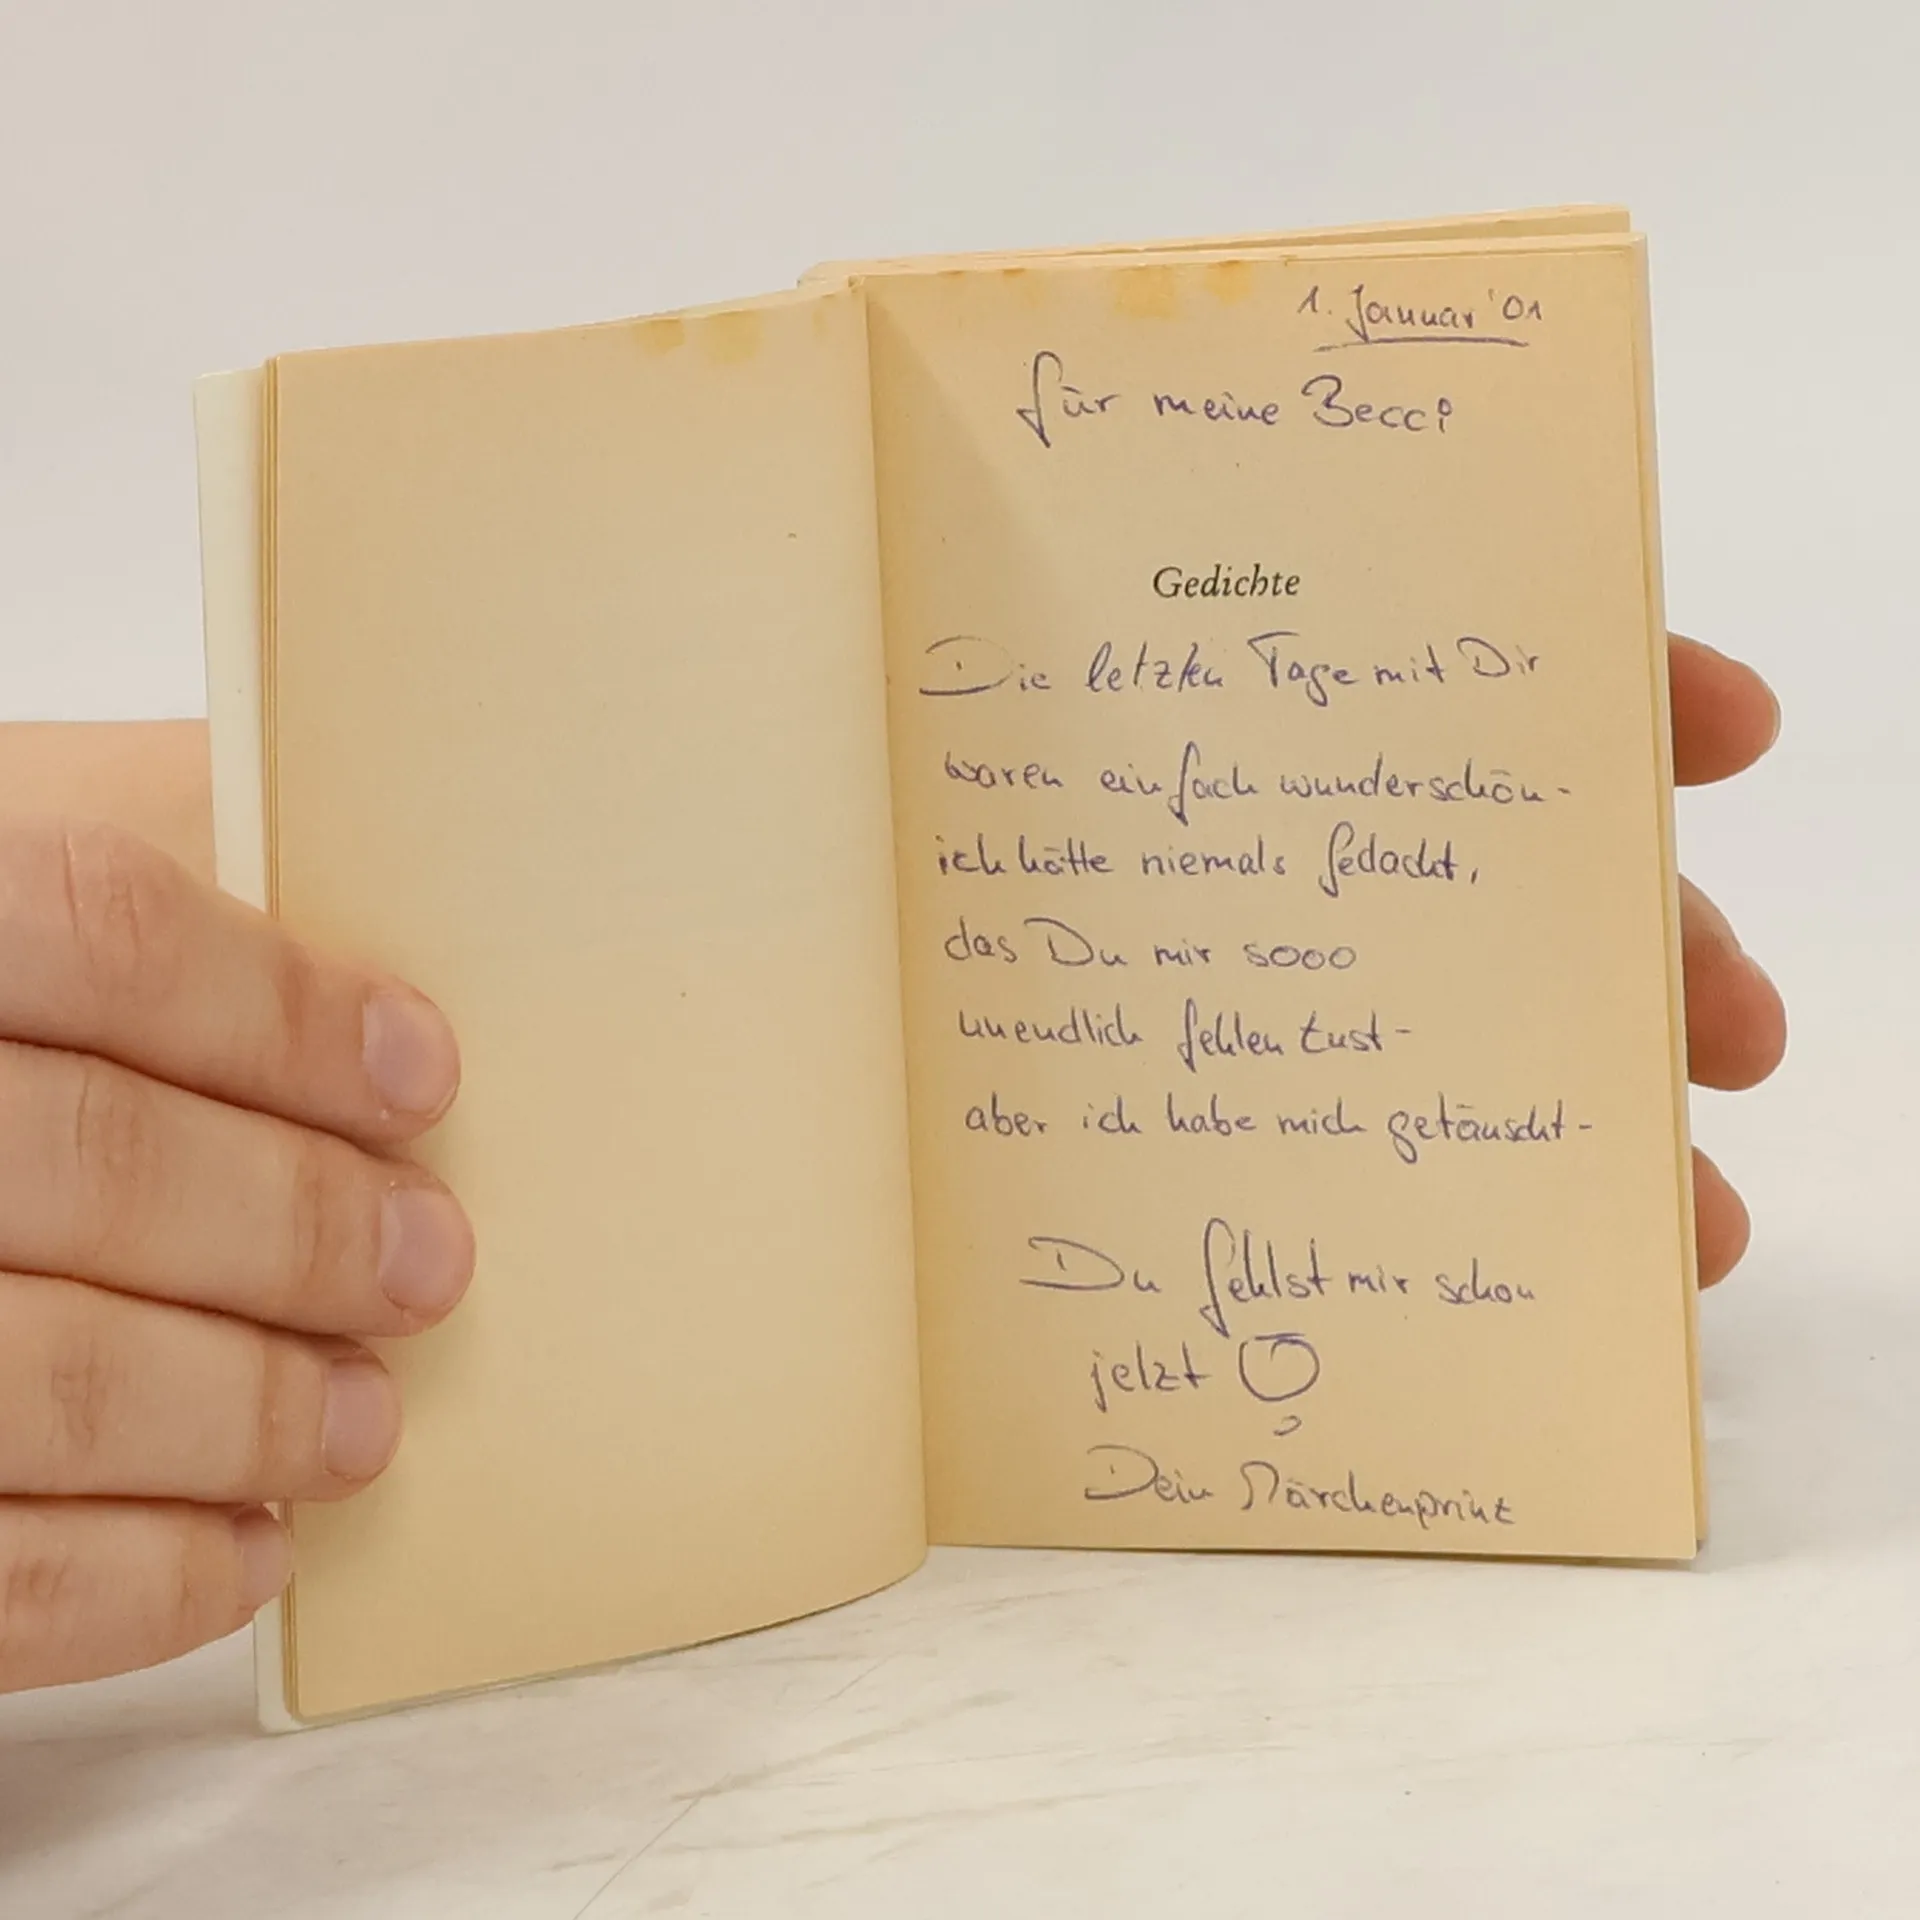 1. Januar '01
für meine Becci
Gedichte
Die letzten Tage mit Dir
waren einfach wunderschön -
ich hätte niemals gedacht,
das Du mir sooo
unendlich fehlen tust -
aber ich habe mich getäuscht -
Du fehlst mir schon
jetzt
Dein Märchenprinz